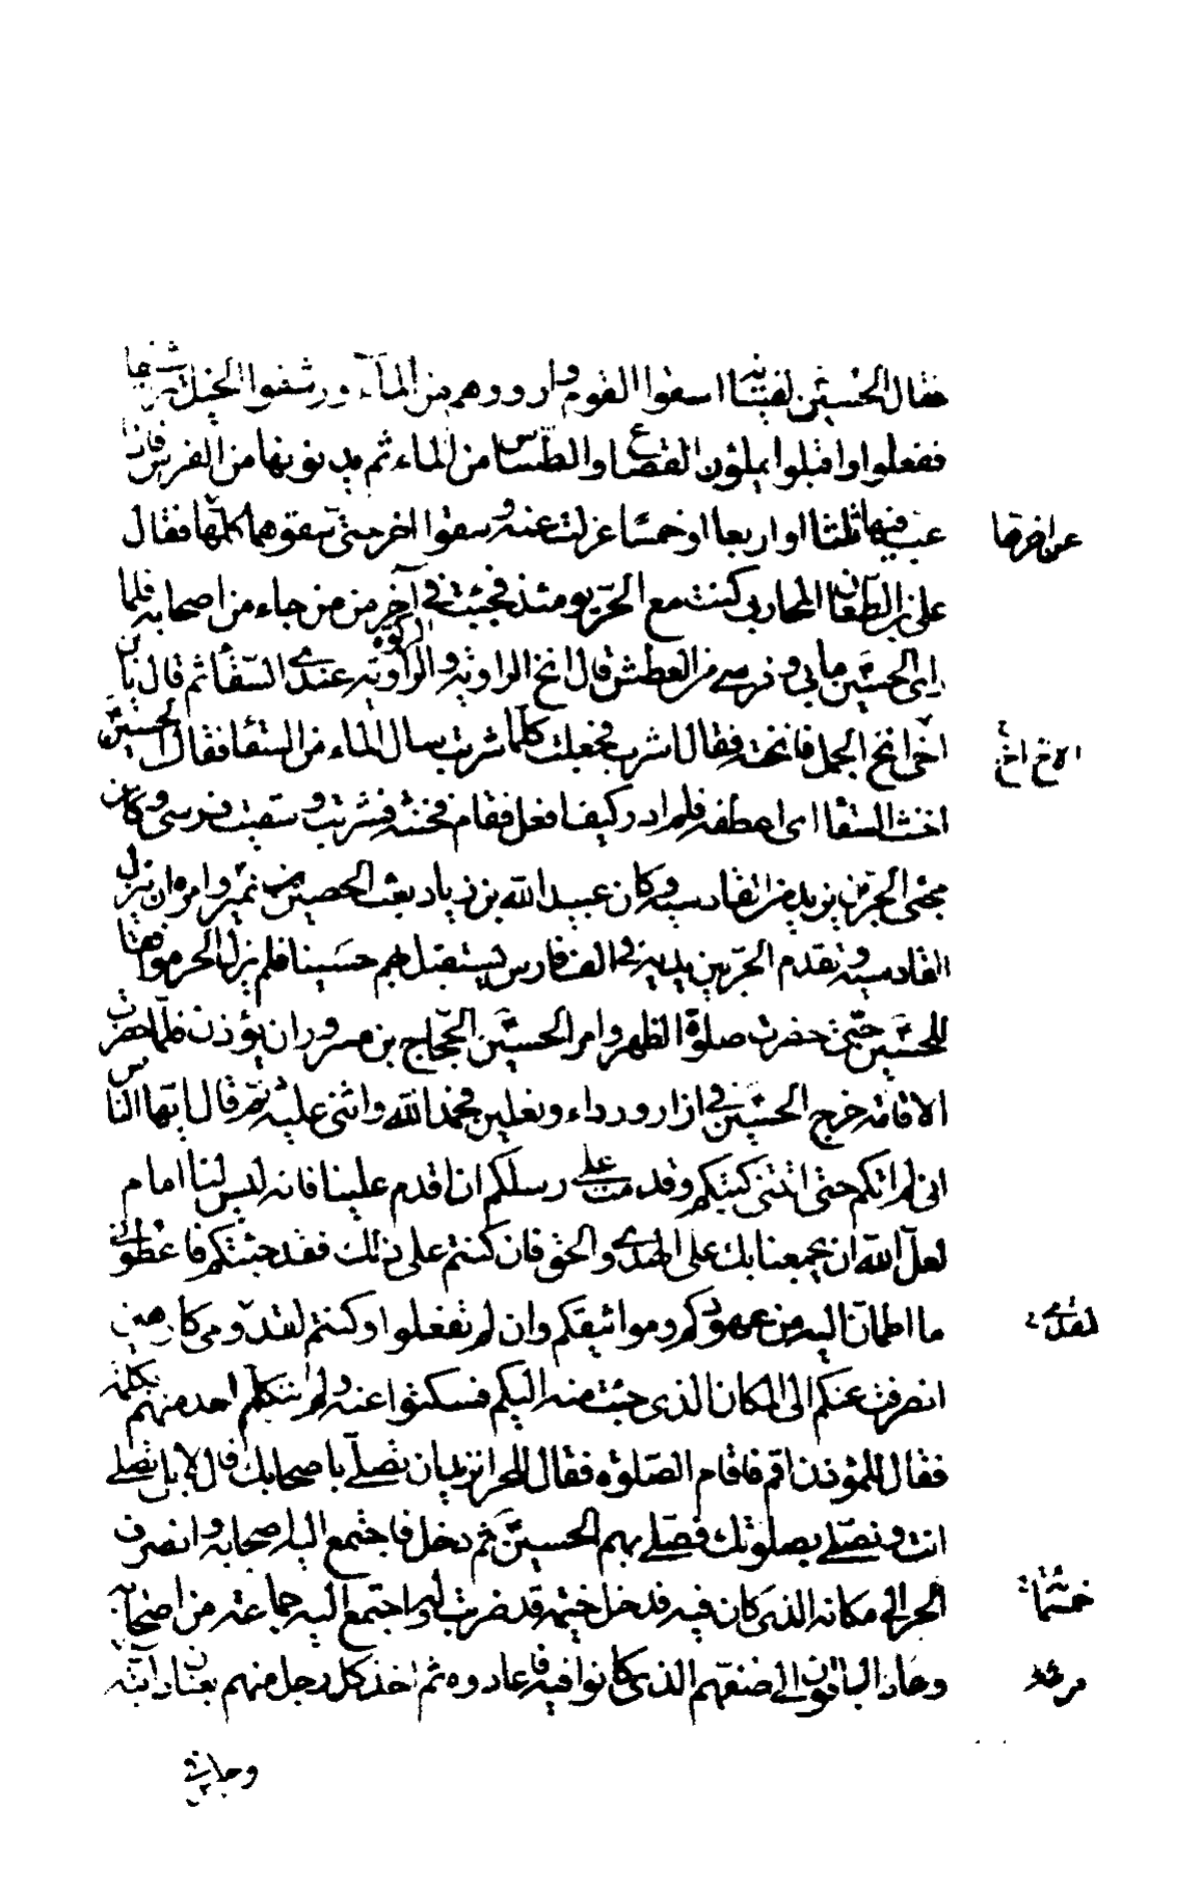 فقال الحسين لفتيانه اسقوا القوم وارووهم من الماء ورشفوا الخيل ترشيفا
ففعلوا واقبلوا يملؤن القصاع والطساس من الماء ثم يدنونها من الفرس فاذا
عب فيها ثلثا او اربعا او خمسا عزلت عنه وسقوا اخر حتى سقوها كلها فقال
على بن الطعان المحاربى كنت مع الحر يومئذ فجئت فى آخر من جاء من اصحابه فلما
راى الحسين مابى وبفرسى من العطش قال انخ الراوية والراوية عندى السقا ثم قال يابن
اخى انخ الجمل فانخته فقال اشرب فجعلت كلما شربت سال الماء من السقا فقال الحسين
اخنث السقا اى اعطفه فلم ادر كيف افعل فقام فخنثه فشربت وسقيت فرسى وكان
مجئ الحر بن يزيد من القادسية وكان عبيد الله بن زياد بعث الحصين بن نمير وامره ان ينزل
القادسية وتقدم الحر بين يديه فى الف فارس يستقبل بهم حسينا فلم يزل الحر موافقا
للحسين حتى حضرت صلوة الظهر وامر الحسين الحجاج بن مسرور ان يؤذن فلما حضرت
الاقامة خرج الحسين فى ازار ورداء ونعلين فحمد الله واثنى عليه ثم قال ايها الناس
انى لم اتكم حتى اتتنى كتبكم وقدمت على رسلكم ان اقدم علينا فانه ليس لنا امام
لعل الله ان يجمعنا بك على الهدى والحق فان كنتم على ذلك فقد جئتكم فاعطونى
ما اطمان اليه من عهودكم ومواثيقكم وان لم تفعلوا وكنتم لقدومى كارهين
انصرفت عنكم الى المكان الذى جئت منه اليكم فسكتوا عنه ولم يتكلم احد منهم بكلمة
فقال للمؤذن اقم فاقام الصلوة فقال للحر اتريد ان تصلى باصحابك قال لا بل تصلى
انت ونصلى بصلوتك فصلى بهم الحسين ثم دخل فاجتمع اليه اصحابه وانصرف
الحر الى مكانه الذى كان فيه فدخل خيمة قد ضربت له واجتمع اليه جماعة من اصحابه
وعاد الباقون الى صفهم الذى كانوا فيه فاعادوه ثم اخذ كل رجل منهم بعنان دابته